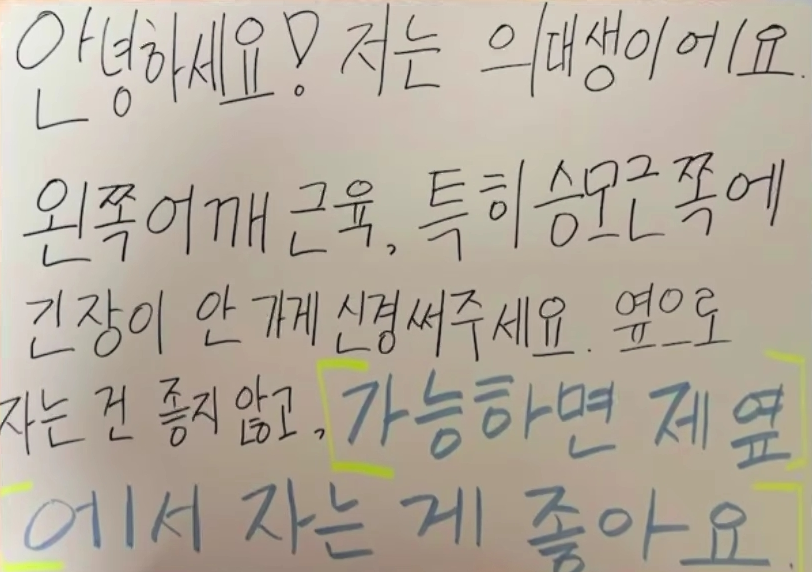 안녕하세요! 저는 의대생이에요.
왼쪽어깨 근육, 특히 승모근쪽에
긴장이 안 가게 신경써주세요. 옆으로
자는 건 좋지 않고, 가능하면 제 옆
에서 자는 게 좋아요.